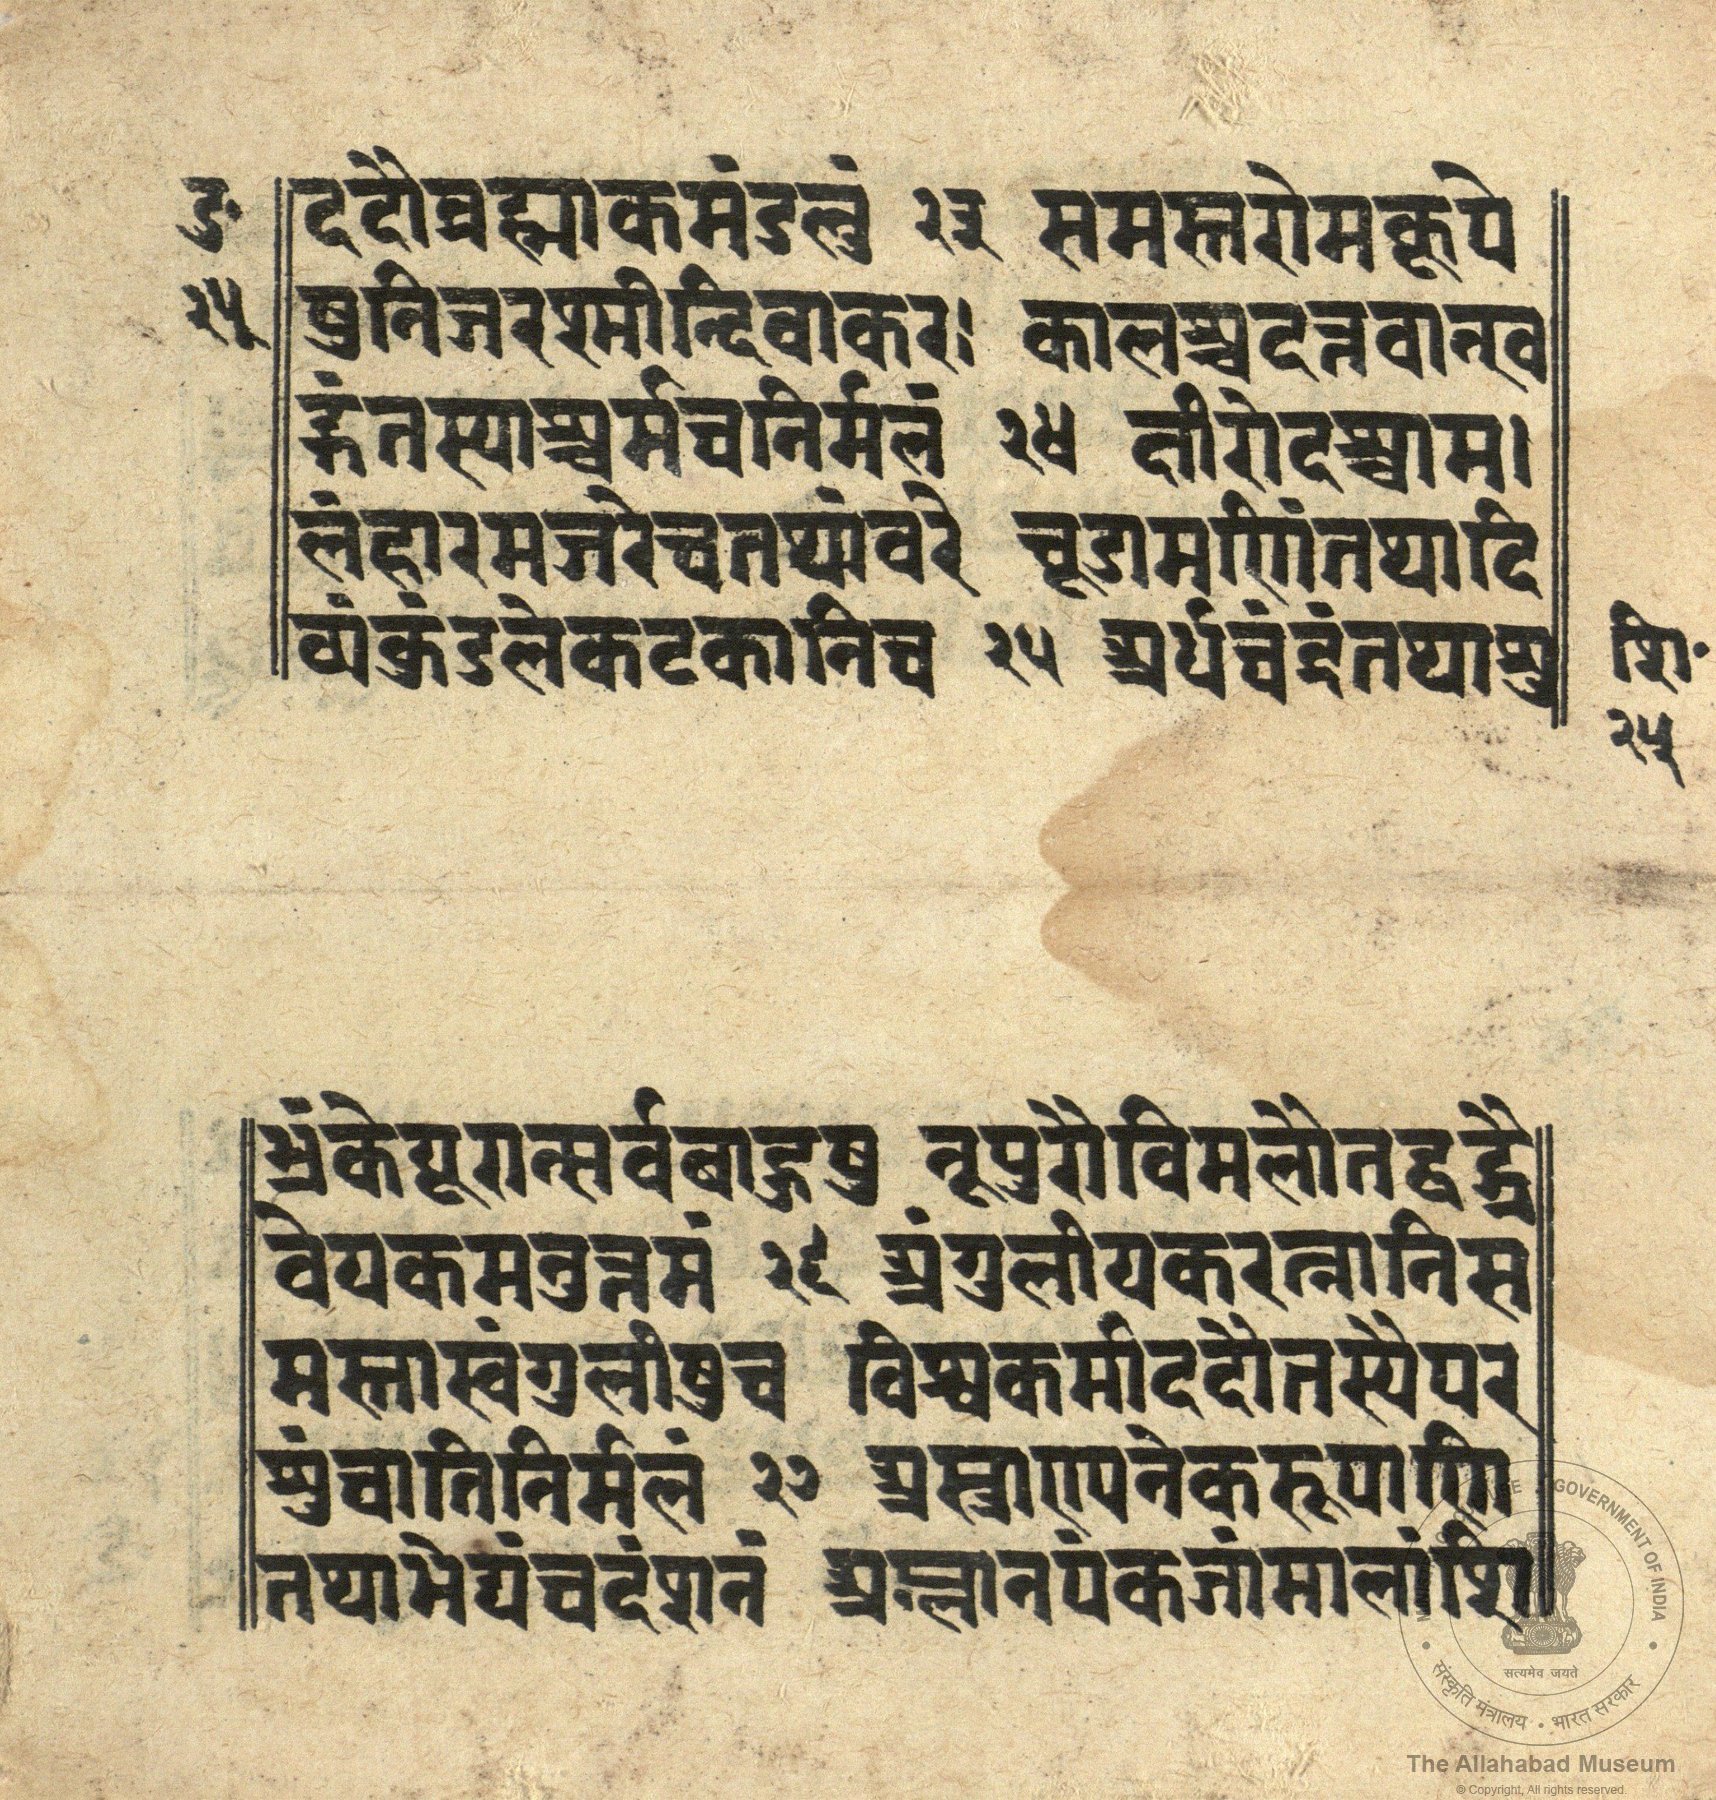 दु॰
२५
ददौब्रह्माकमंडलुं २३ समस्तरोमकूपे
षुनिजरश्मीन्दिवाकरः कालश्चदत्तवान्ख
ड्गंतस्याश्चर्मचनिर्मलं २४ क्षीरोदश्चाम
लंहारमजरेचतथांवरे चूडामणिंतथादि
व्यंकुंडलेकटकानिच २५ अर्धचंद्रंतथाशु
शि॰
२५
भ्रंकेयूरान्सर्वबाहुषु नूपुरौविमलौतद्वद्ग्रै
वेयकमनुत्तमं २६ अंगुलीयकरत्नानिस
मस्तास्वंगुलीषुच विश्वकर्माददौतस्यैपर
शुंचातिनिर्मलं २७ अस्त्राण्यनेकरूपाणि
तथाभेद्यंचदंशनं अम्लानपंकजांमालांशि
GOVERNMENT OF INDIA
सत्यमेव जयते
संस्कृति मंत्रालय • भारत सरकार
The Allahabad Museum
© Copyright, All rights reserved.